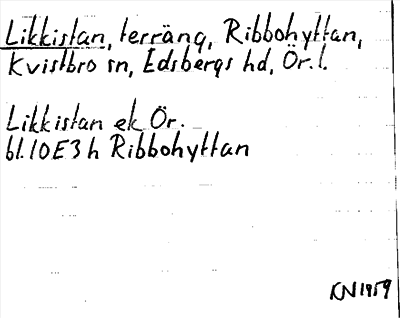 Likkistan, terräng, Ribbohyttan,
Kvistbro sn, Edsbergs hd, Ör. l.
Likkistan ek Ör.
bl. 10E3h Ribbohyttan
KN1959